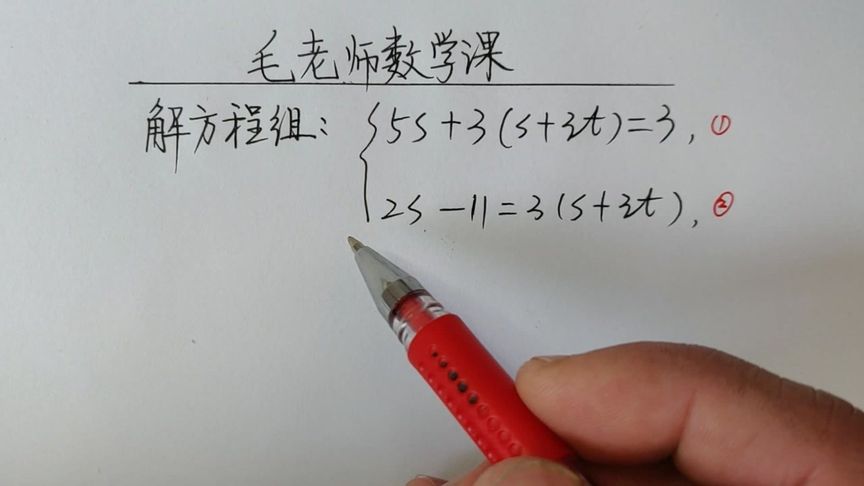 毛老师数学课
解方程组: { 5s+3(s+3t)=3, ①
2s-11=3(s+3t), ②